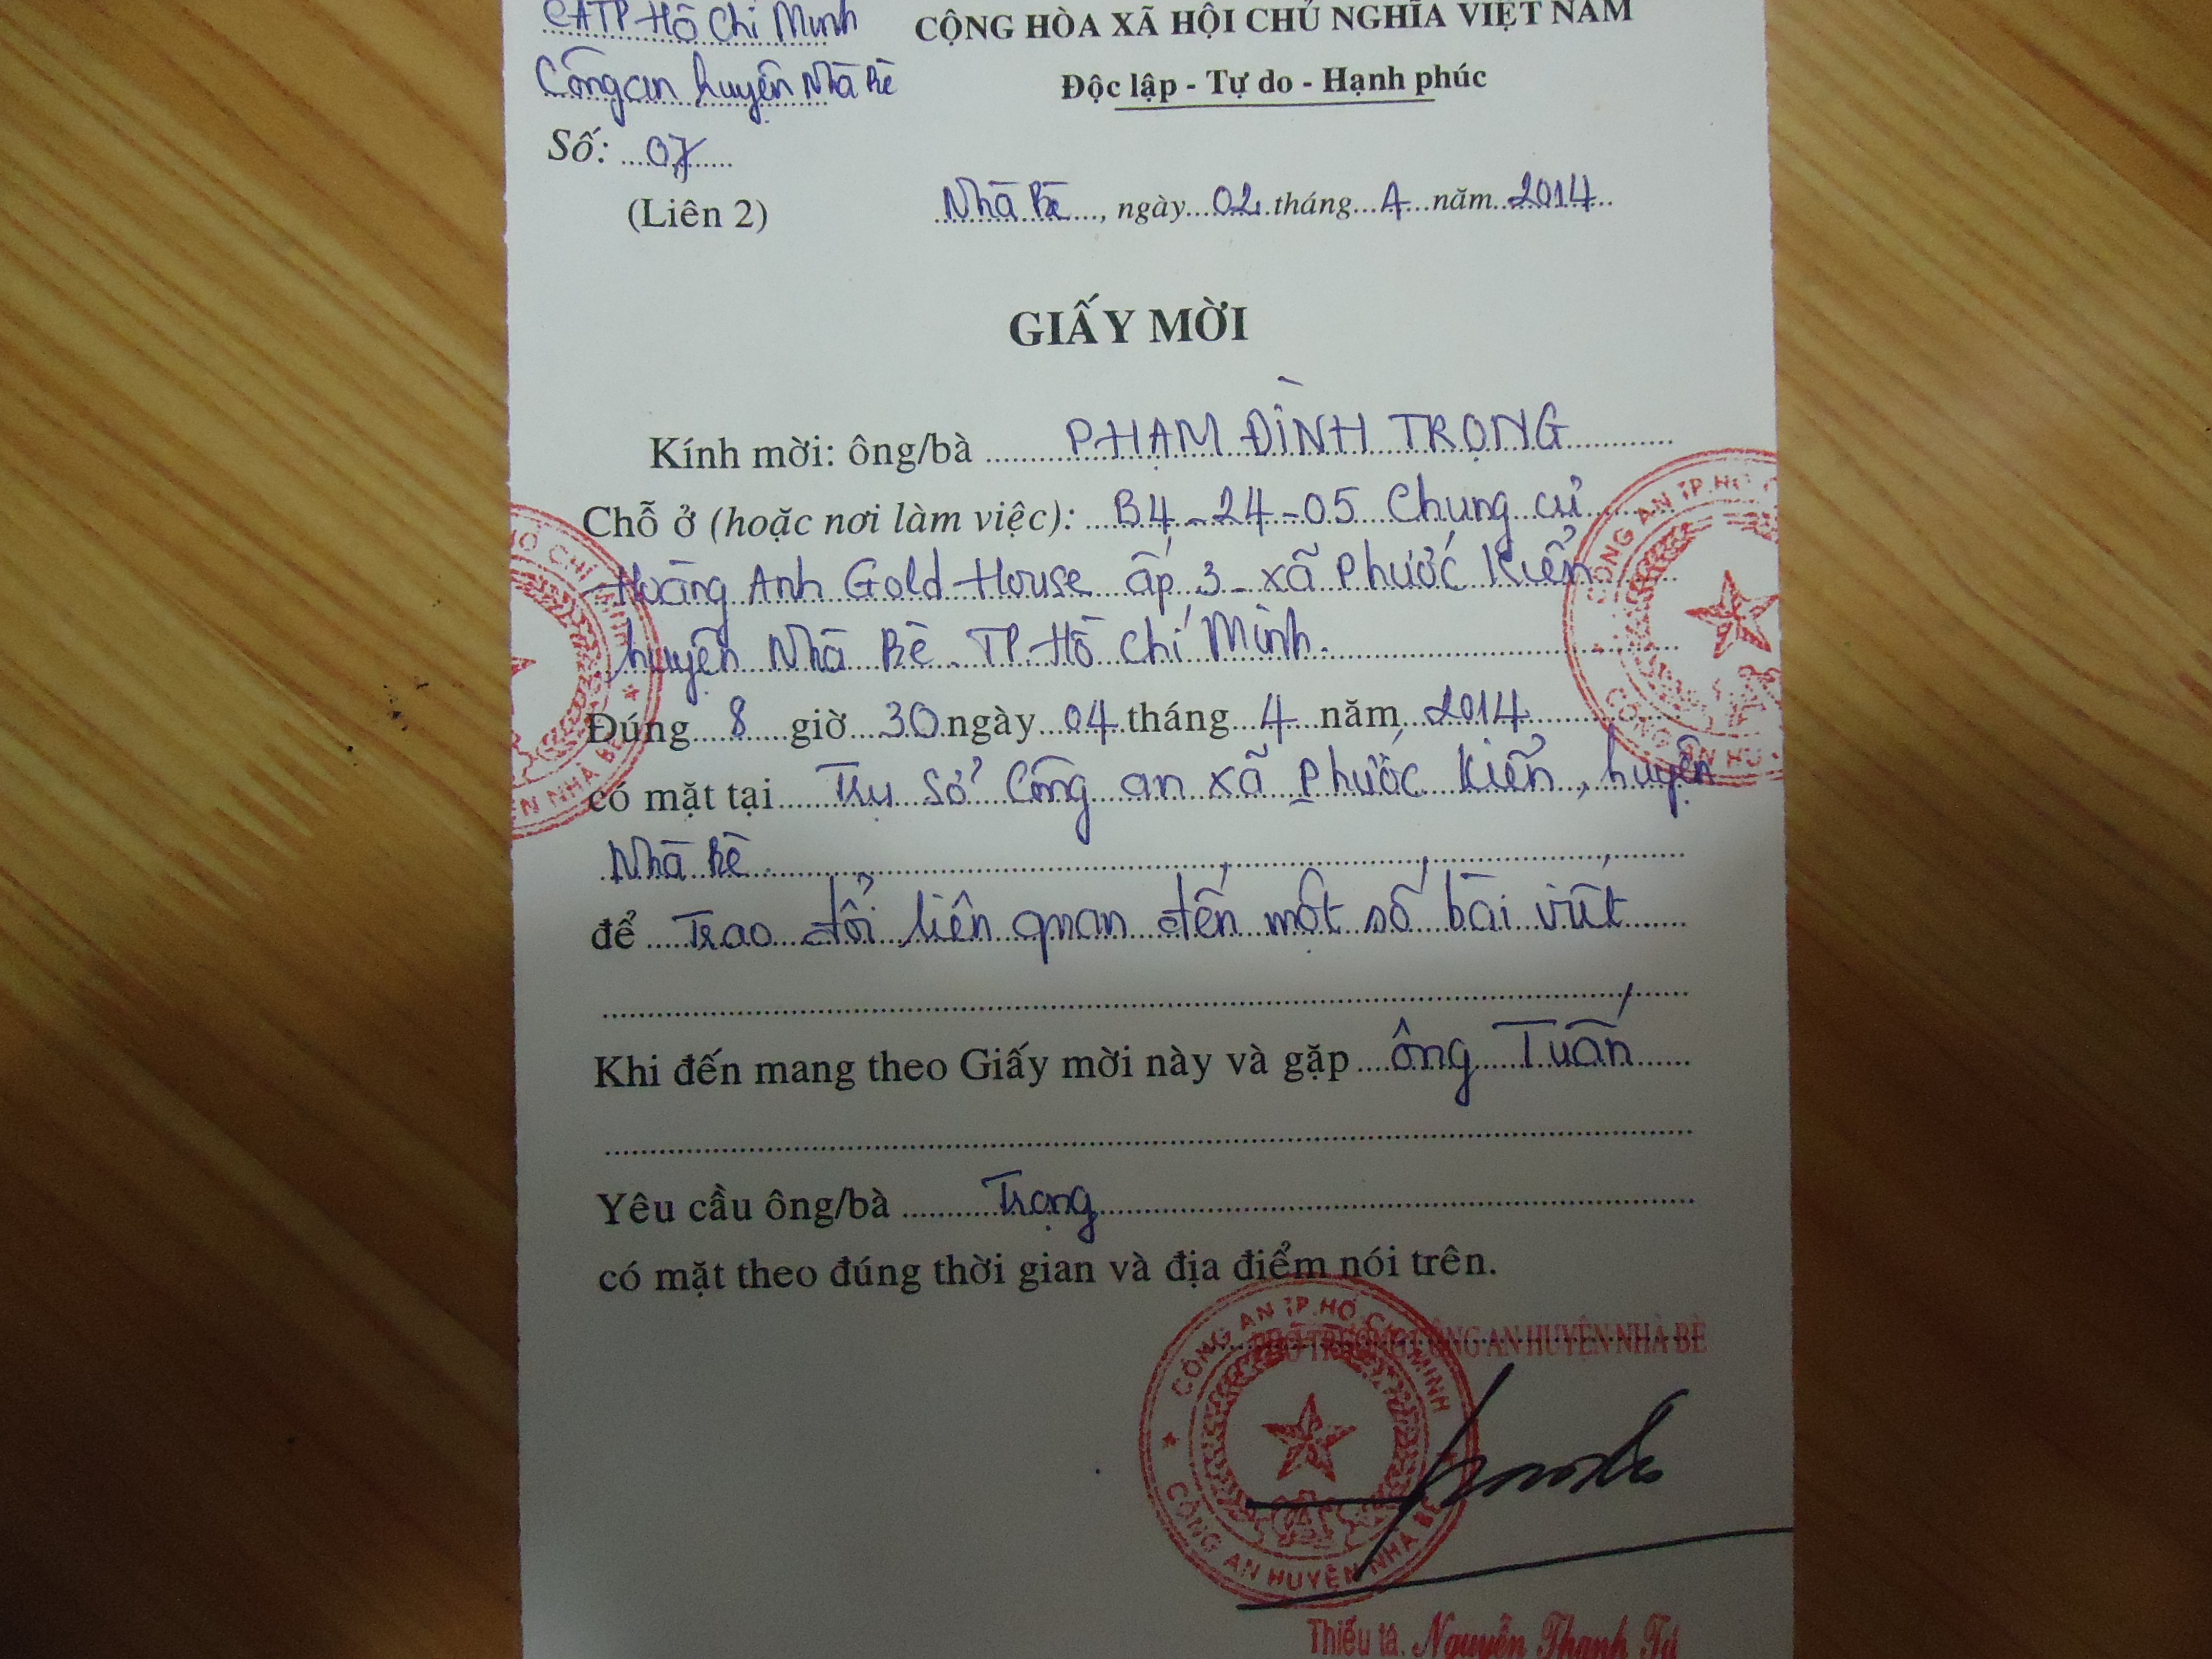 CATP Hồ Chí Minh
Công an huyện Nhà Bè
CỘNG HÒA XÃ HỘI CHỦ NGHĨA VIỆT NAM
Độc lập - Tự do - Hạnh phúc
Số: 07
(Liên 2)
Nhà Bè, ngày 02 tháng 4 năm 2014
GIẤY MỜI
Kính mời: ông/bà PHẠM ĐÌNH TRỌNG
Chỗ ở (hoặc nơi làm việc): B4-24-05 Chung cư
Hoàng Anh Gold House ấp 3 - xã Phước Kiển
huyện Nhà Bè. TP. Hồ Chí Minh.
Đúng 8 giờ 30 ngày 04 tháng 4 năm 2014
có mặt tại Trụ sở Công an xã Phước Kiển, huyện
Nhà Bè
để Trao đổi liên quan đến một số bài viết
Khi đến mang theo Giấy mời này và gặp ông Tuấn
Yêu cầu ông/bà Trọng
có mặt theo đúng thời gian và địa điểm nói trên.
PHÓ TRƯỞNG CÔNG AN HUYỆN NHÀ BÈ
CÔNG AN TP. HỒ CHÍ MINH
CÔNG AN HUYỆN NHÀ BÈ
Thiếu tá. Nguyễn Thanh Tú